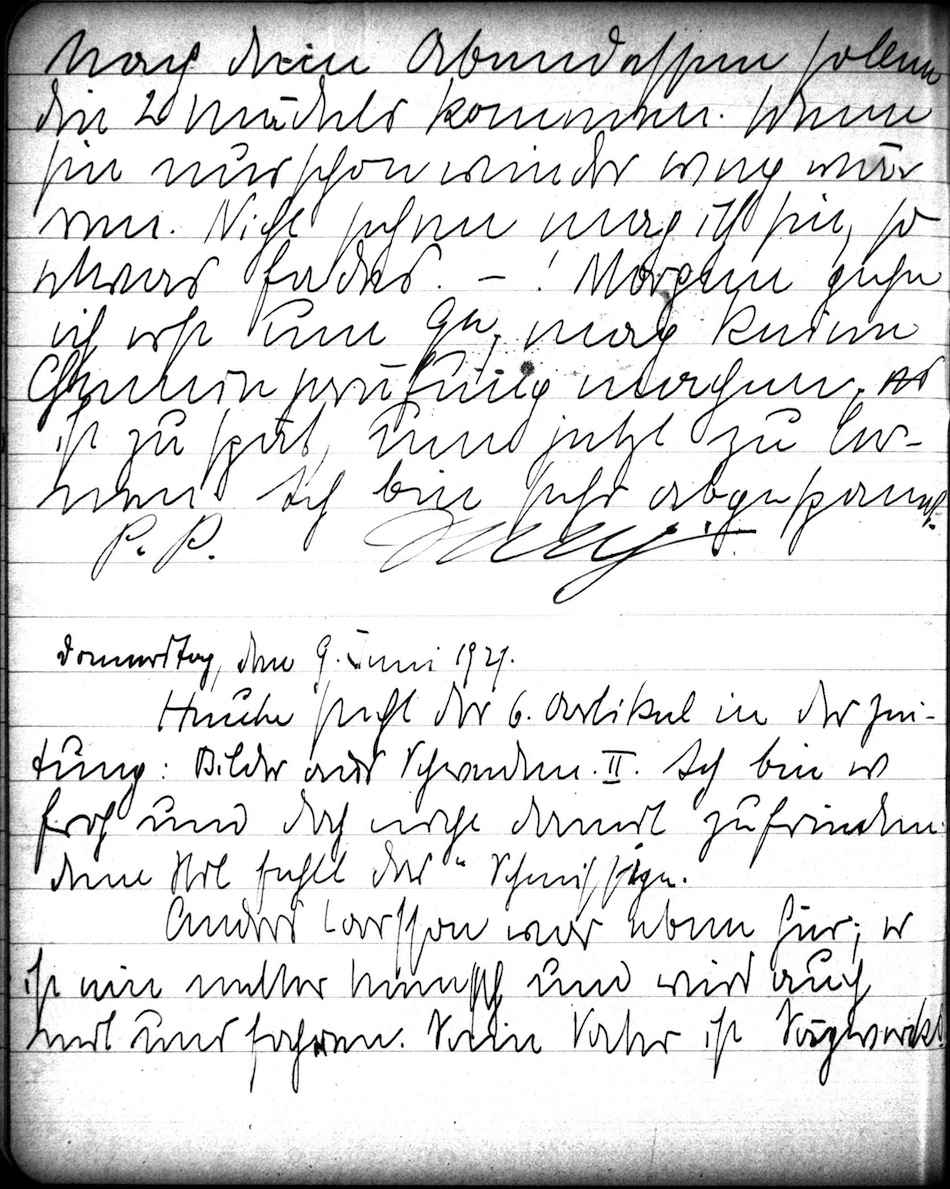 Nach dem Abendessen sollen
die 2 Mädels kommen. Wenn
sie nur schon wieder weg wär-
en. Nicht sehen mag ich sie, so
etwas fades. – ! Morgen gehe
ich erst um 9h, mag keine
prüfung machen. Es
ist zu spät, um jetzt zu ler-
nen. Ich bin sehr abgespannt.
P. P.
Donnerstag, den 9. Juni 1927.
Heute steht der 6. Artikel in der Zei-
tung: Bilder aus Schweden. II. Ich bin so
froh und doch nicht damit zufrieden.
dem Stil fehlt das " Schmissige.
Anders Larsson war eben hier; er
ist ein netter Mensch und wird auch
mit uns fahren. Sein Vater ist